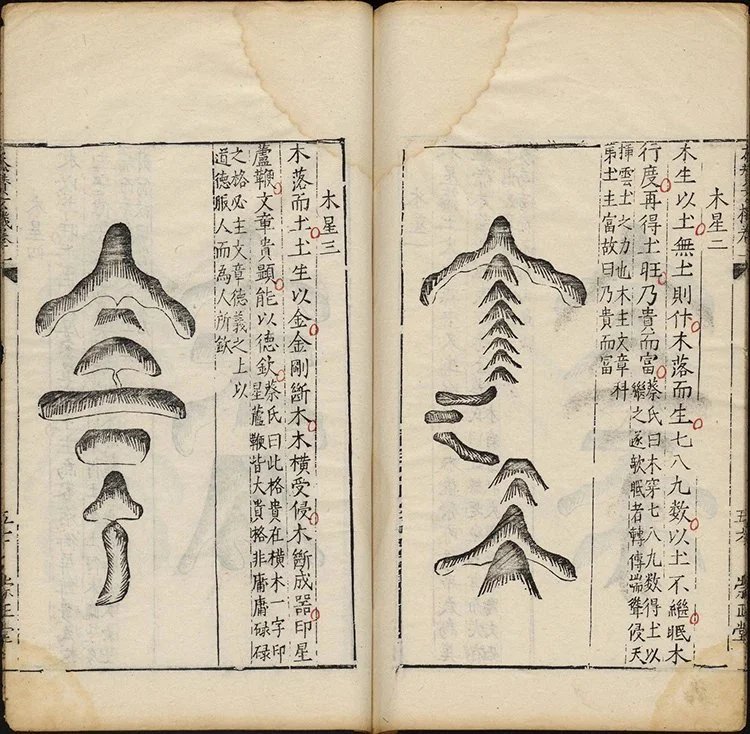 木星二
木生以土無土則仆木落而生七八九數以土不繼眠木
行度再得土旺乃貴而富
蔡氏曰木穿七八九數得土以
繼之遂軟眠者轉傳端聳侵天
揮雲土之力也木主文章科
第土主富故曰乃貴而富
崇正堂
木星三
木落而土土生以金金剛斷木木橫受侵木斷成器印星
蘆鞭文章貴顯能以德欽
蔡氏曰此格貴在橫木一字印
星蘆鞭皆大貴格非庸庸碌碌
之格必主文章德義之上以
道德賑人而為人所欽
崇正堂